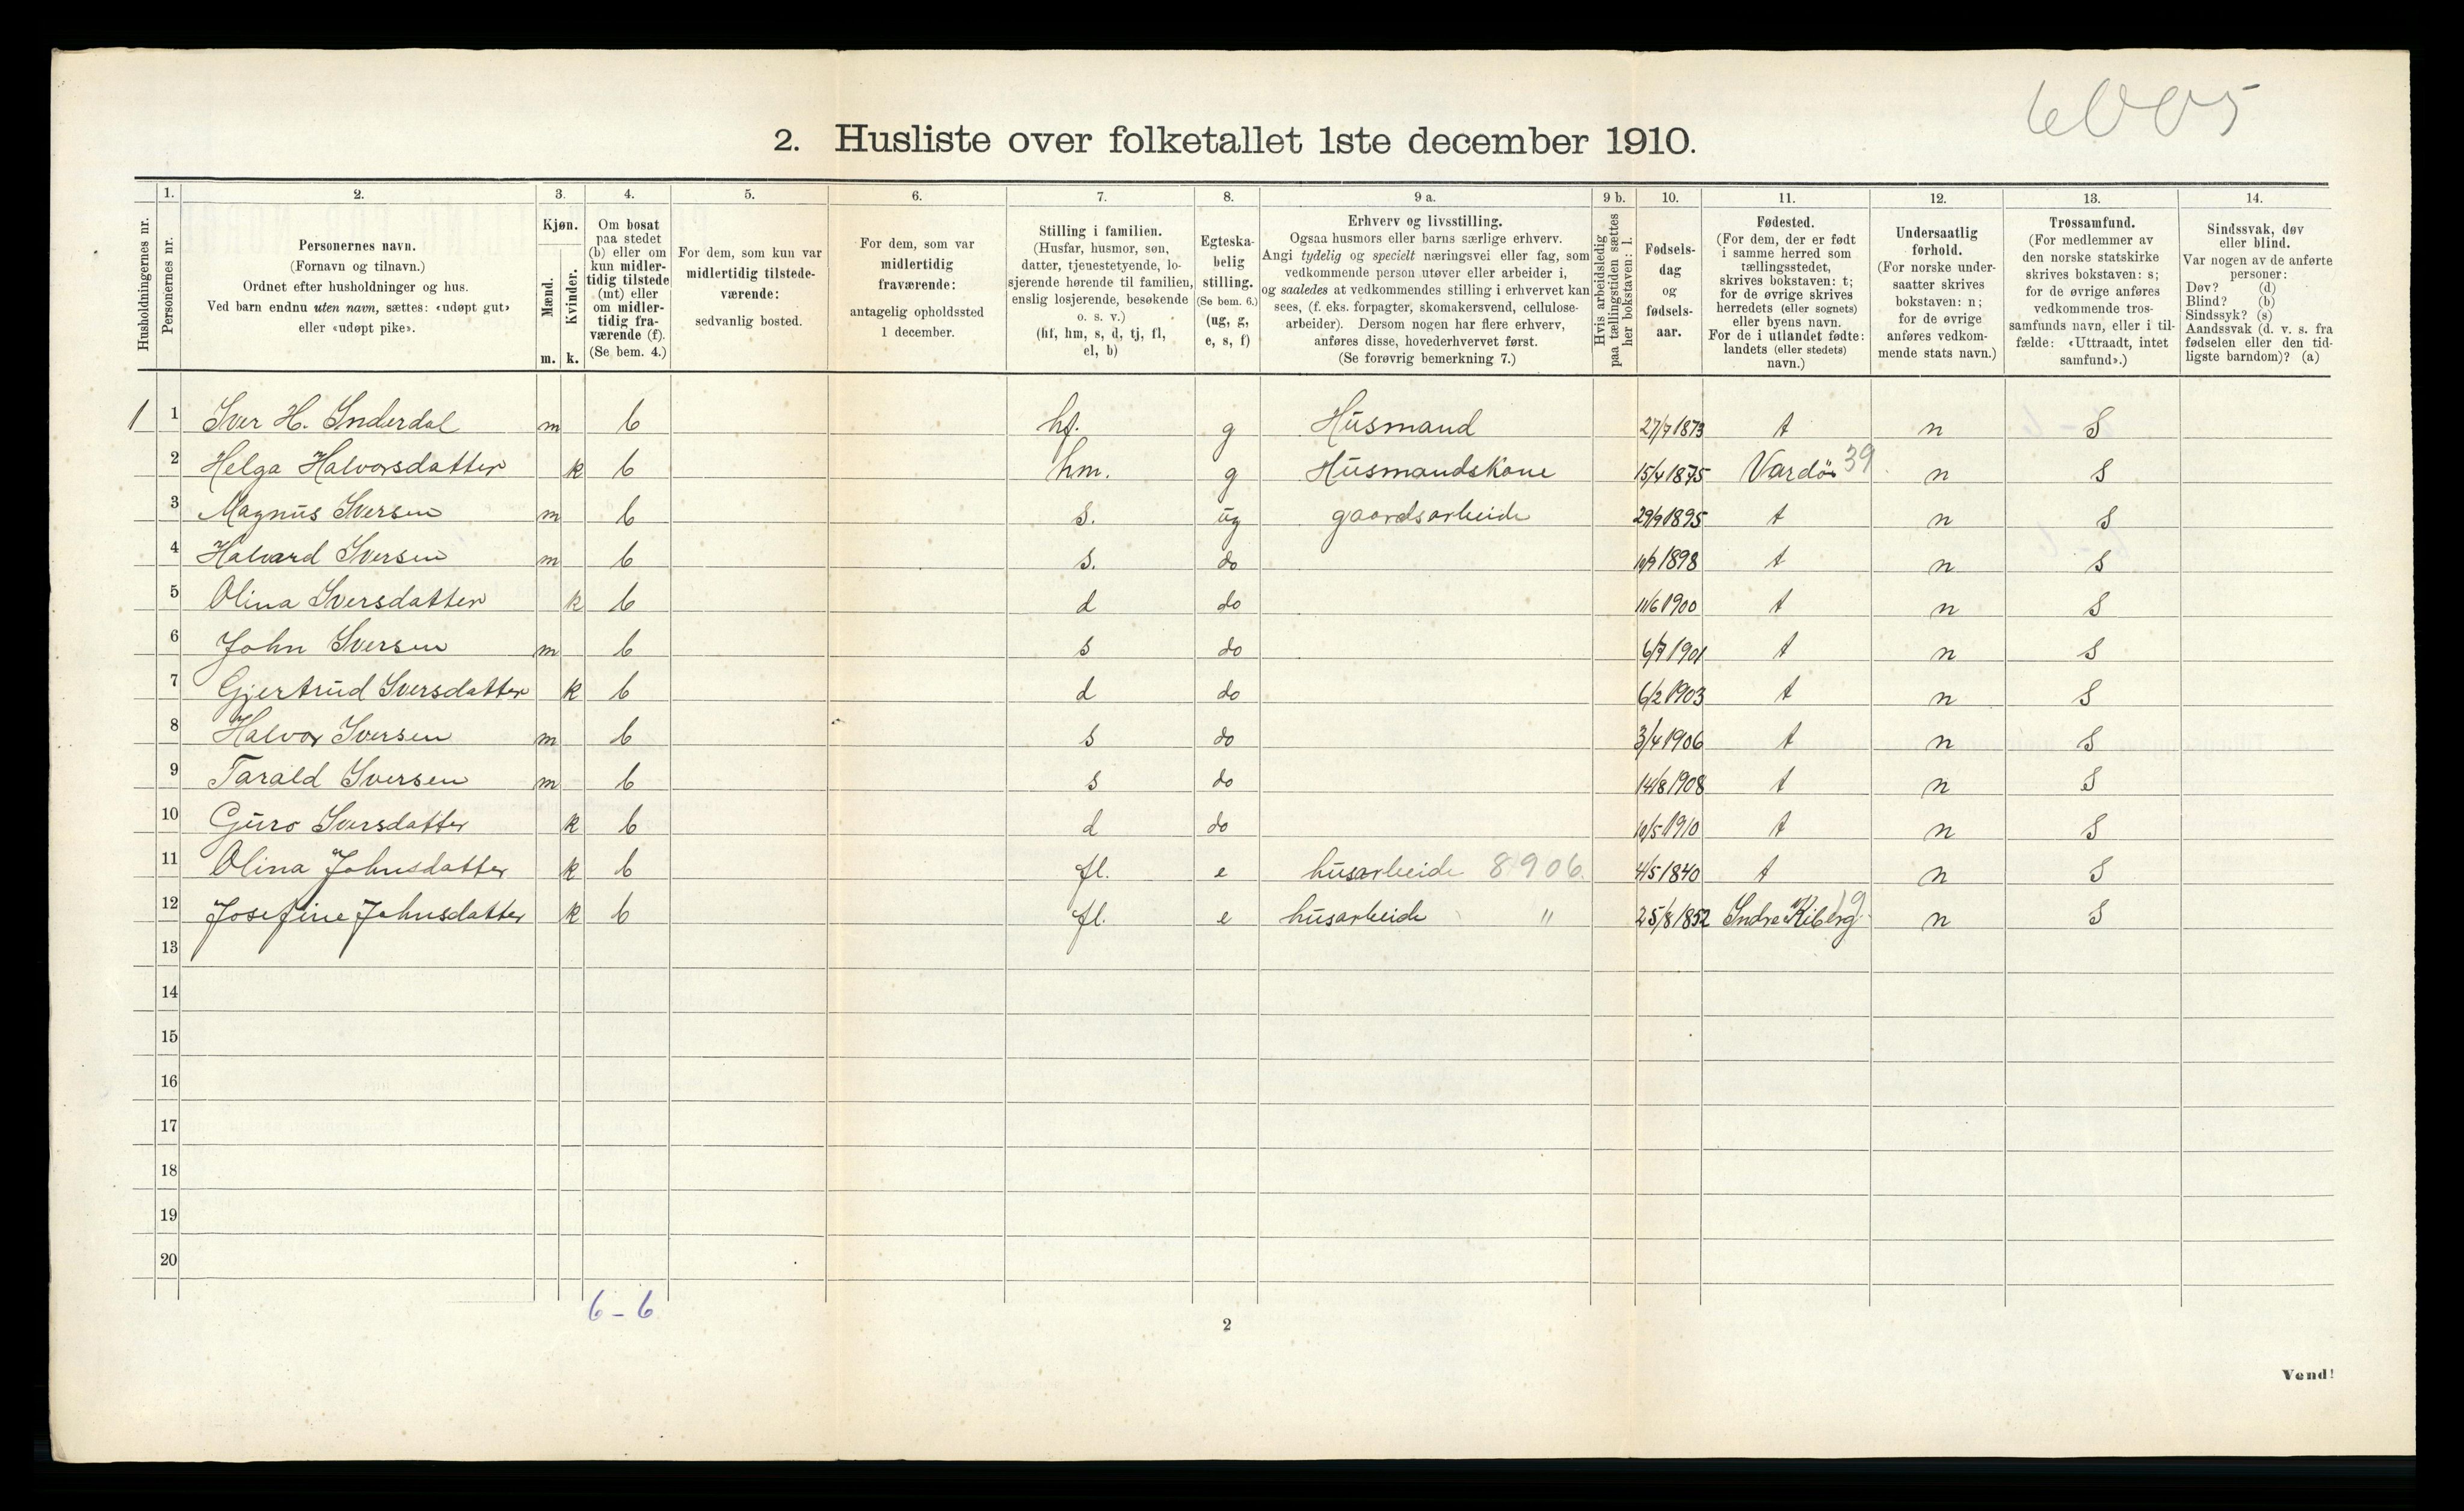 6005
2. Husliste over folketallet 1ste december 1910.
Husholdningernes nr.
1.
Personernes nr.
2.
Personernes navn.
(Fornavn og tilnavn.)
Ordnet efter husholdninger og hus.
Ved barn endnu uten navn, sættes: «udøpt gut»
eller «udøpt pike».
3.
Kjøn.
Mænd.
Kvinder.
m. k.
4.
Om bosat
paa stedet
(b) eller om
kun midler-
tidig tilstede
(mt) eller
om midler-
tidig fra-
værende (f).
(Se bem. 4.)
5.
For dem, som kun var
midlertidig tilstede-
værende:
sedvanlig bosted.
6.
For dem, som var
midlertidig
fraværende:
antagelig opholdssted
1 december.
7.
Stilling i familien.
(Husfar, husmor, søn,
datter, tjenestetyende, lo-
sjerende hørende til familien,
enslig losjerende, besøkende
o. s. v.)
(hf, hm, s, d, tj, fl,
el, b)
8.
Egteska-
belig
stilling.
(Se bem. 6.)
(ug, g,
e, s, f)
9 a.
Erhverv og livsstilling.
Ogsaa husmors eller barns særlige erhverv.
Angi tydelig og specielt næringsvei eller fag, som
vedkommende person utøver eller arbeider i,
og saaledes at vedkommendes stilling i erhvervet kan
sees, (f. eks. forpagter, skomakersvend, cellulose-
arbeider). Dersom nogen har flere erhverv,
anføres disse, hovederhvervet først.
(Se forøvrig bemerkning 7.)
9 b.
Hvis arbeidsledig
paa tællingstiden sættes
her bokstaven: l.
10.
Fødsels-
dag
og
fødsels-
aar.
11.
Fødested.
(For dem, der er født
i samme herred som
tællingsstedet,
skrives bokstaven: t;
for de øvrige skrives
herredets (eller sognets)
eller byens navn.
For de i utlandet fødte:
landets (eller stedets)
navn.)
12.
Undersaatlig
forhold.
(For norske under-
saatter skrives
bokstaven: n;
for de øvrige
anføres vedkom-
mende stats navn.)
13.
Trossamfund.
(For medlemmer av
den norske statskirke
skrives bokstaven: s;
for de øvrige anføres
vedkommende tros-
samfunds navn, eller i til-
fælde: «Uttraadt, intet
samfund».)
14.
Sindssvak, døv
eller blind.
Var nogen av de anførte
personer:
Døv? (d)
Blind? (b)
Sindssyk? (s)
Aandssvak (d. v. s. fra
fødselen eller den tid-
ligste barndom)? (a)
1 1 Iver H. Inderdal m b hf. g Husmand 27/7 1873 t n S
2 Helga Halvorsdatter k b hm. g Husmandskone 15/4 1875 Vardö 39 n S
3 Magnus Iversen m b s. ug gaardsarbeide 29/9 1895 t n S
4 Halvard Iversen m b s. do 10/9 1898 t n S
5 Olina Iversdatter k b d do 11/6 1900 t n S
6 John Iversen m b s do 6/7 1901 t n S
7 Gjertrud Iversdatter k b d do 6/2 1903 t n S
8 Halvor Iversen m b s do 3/4 1906 t n S
9 Tarald Iversen m b s do 14/8 1908 t n S
10 Guro Iversdatter k b d do 10/5 1910 t n S
11 Olina Johnsdatter k b fl. e husarbeide 8906. 4/5 1840 t n S
12 Josefine Johnsdatter k b fl. e husarbeide " 25/8 1852 Indre Kiberg n S
13
14
15
16
17
18
19
20
6-6
2
Vend!